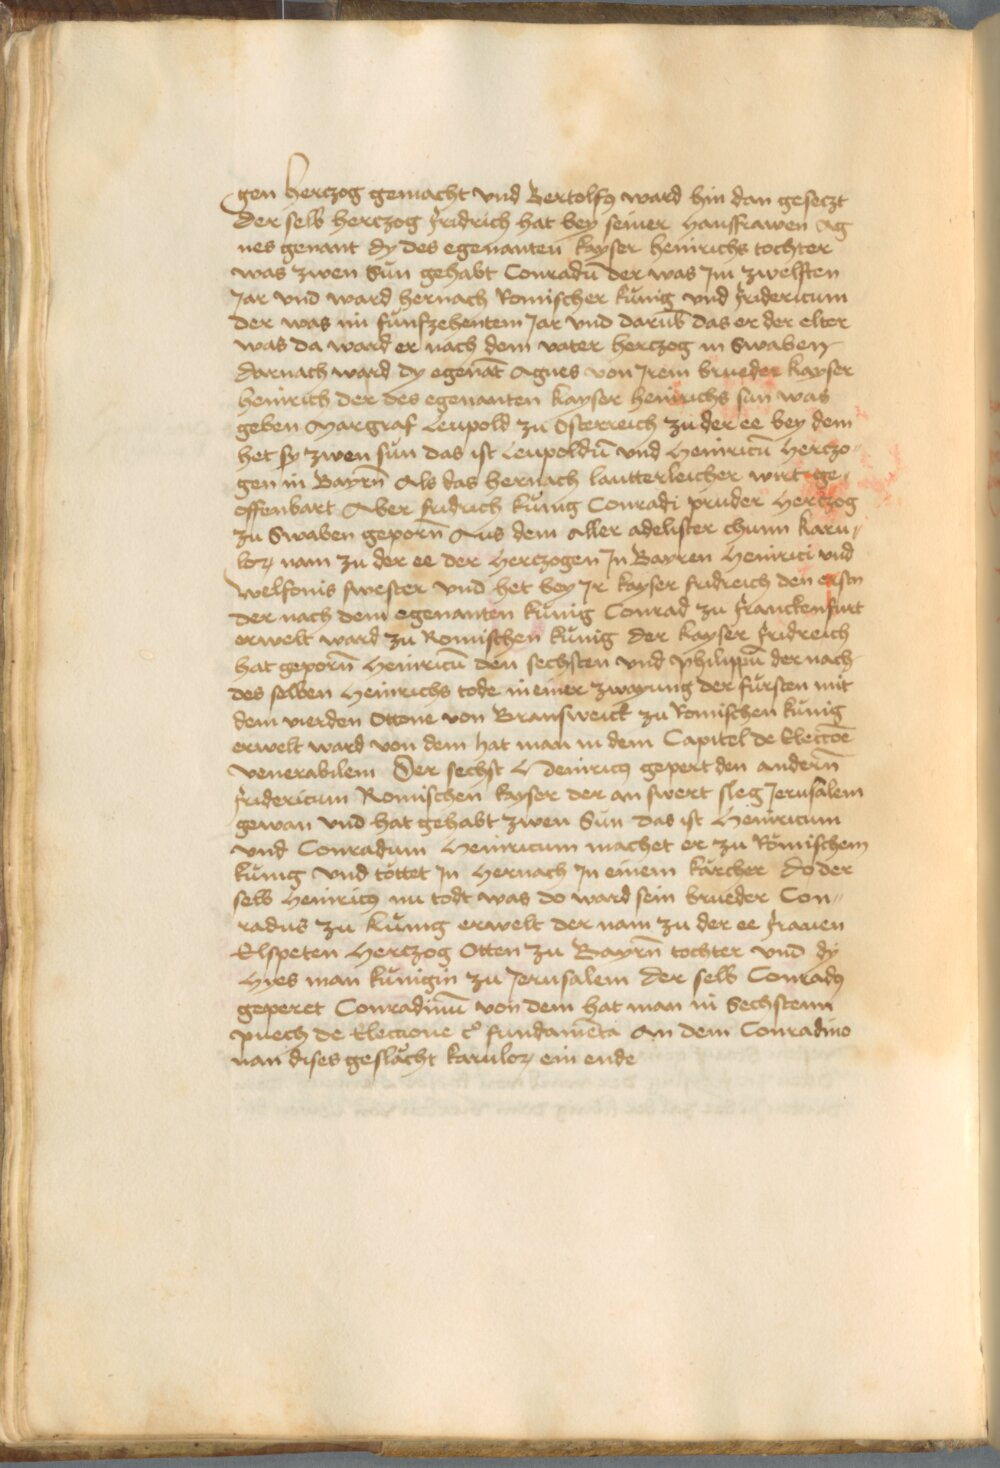 gen herczog gemacht vnd Bertolfus ward hin dan geseczt
Der selb herczog fridrich hat bey seiner hausfrawen Ag
nes genant dy des egenanten kayser heinrichs tochter
was zwen Sün gehabt Conradū der was Jm zwelften
Jar vnd ward hernach Romischer künig vnd fridericum
der was im fünfzehentem Jar vnd darūb das er der elter
was da ward er nach dem vater herczog in Swaben
darnach ward dy egenāt Agnes von Jrem brueder kayser
heinrich der des egenanten kayser heinrichs sun was
geben Margraf Leupold zu Osterreich zu der ee bey dem
het sy zwen sün das ist Leupoldū vnd Heinricū herczo-
gen in Bayrn̄ Als das hernach lautterleicher wirt ge-
offenbart Aber fridrich künig Conradi pruder herczog
zu Swaben geporn̄ Aus dem Aller adelister chunn karu-
loꝝ nam zu der ee der herczogen Jn Bayren Heinrici vnd
welfonis swester vnd het bey Jr kayser fridreich den ersten
der nach dem egenanten künig Conrad zu franckenfurt
erwelt ward zu Romischen künig der kayser fridreich
hat geporn̄ Heinricū den sechsten vnd philippū der nach
des selben Heinrichs tode in einer zwayung der fürsten mit
dem vierden Ottone von Bransweick zu Romischen künig
erwelt ward von dem hat man in dem Capitel de Eleccōe
venerabilem Der sechst Heinricus gepert den andern̄
fridericum Romischen kayser der an swert sleg Jerusalem
gewan vnd hat gehabt zwen Sün das ist Heinricum
vnd Conradum Heinricum machet er zu Römischem
künig vnd töttet Jn hernach Jn einem kärcher do der
selb Heinricus nu todt was do ward sein brueder Con-
radus zu künig erwelt der nam zu der ee frauen
Elspeten herczog Otten zu Bayrn̄ tochter vnd dy
hies man künigin zu Jerusalem der selb Conradus
geperet Conradinū von dem hat man in Sechstenn
puech de Eleccione c° fundamēta An dem Conradino
nan dises geslächt karuloꝝ ein ende